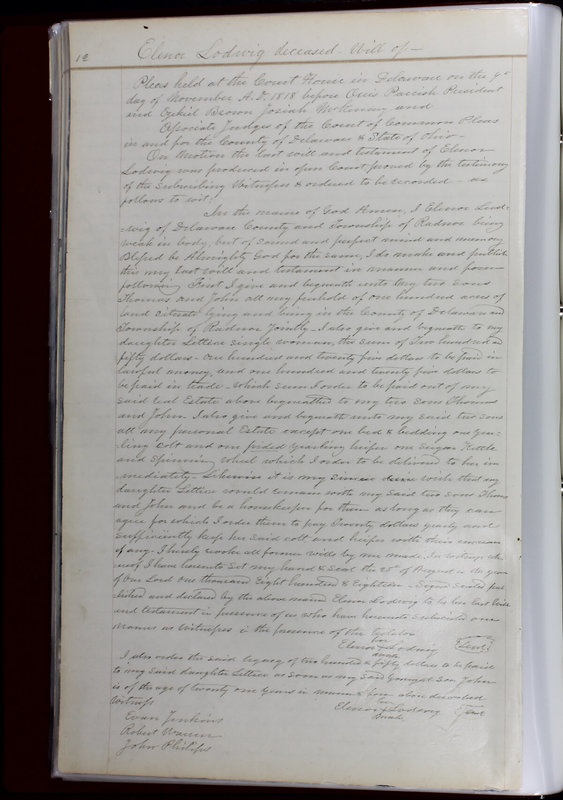 12 Elenor Lodwig deceased - Will of -
Pleas held at the Court House in Delaware on the 9th
day of November A.D. 1818 before Otis Parrish President
and Ezekiel Brown Josiah McKinney and
Associate Judges of the Court of Common Pleas
in and for the County of Delaware & State of Ohio -
On Motion the last will and testament of Elenor
Lodwig was produced in open Court proved by the testimony
of the subscribing Witnesses & ordered to be recorded - as
follows to wit:
In the name of God Amen, I Elenor Lod-
-wig of Delaware County and Township of Radnor being
weak in body, but of sound and perfect mind and memory
Blessed be Almighty God for the same, I do make and publish
this my last will and testament in manner and form
following First I give and bequeath unto my two sons
Thomas and John all my freehold of one hundred acres of
land situate lying and being in the County of Delaware and
Township of Radnor Jointly - I also give and bequeath to my
daughter Lettice single woman, the sum of Two hundred &
fifty dollars - One hundred and twenty five dollars to be paid in
lawful money, and one hundred and twenty five dollars to
be paid in trade - which sum I order to be paid out of my
said real Estate above bequeathed to my two sons Thomas
and John. I also give and bequeath unto my said two sons
all my personal Estate except one bed & bedding one year-
ling colt and one yearling heifer one Sugar Kettle
and Spinning wheel which I order to be delivered to her im-
mediately - Likewise it is my sincere desire wish that my
daughter Lettice would remain with my said two sons Thomas
and John and be a housekeeper for them as long as they can
agree for which I order them to pay Twenty dollars yearly and
sufficiently keep her said colt and heifer with their increase
if any. I hereby revoke all former wills by me made. In witness whe-
reof I have hereunto set my hand & seal the 25th of August in the year
of Our Lord One thousand Eight hundred & Eighteen - Signed Sealed pub-
lished and declared by the above named Elenor Lodwig to be her last Will
and testament in presence of us who have hereunto subscribed our
names as Witnesses in the presence of the testator
her
Elenor X Lodwig Seal
mark
I also order the said legacy of two hundred & fifty dollars to be paid
to my said daughter Lettice as soon as my said youngest son John
is of the age of twenty one years in manner & form above described
Witness her
Elenor X Lodwig Seal
mark
Evan Jenkins
Robert Warren
John Phillips